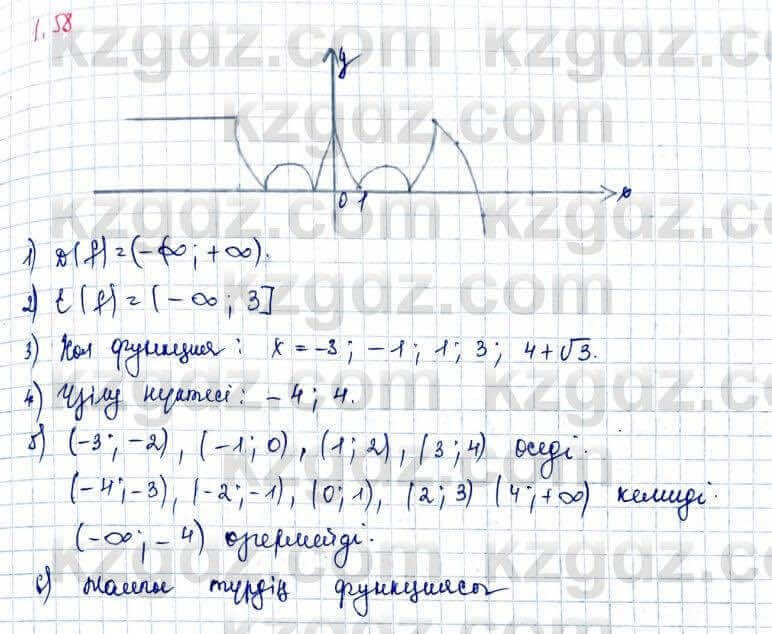 1.58
y
0 1 x
1) D(f)=(-∞; +∞).
2) E(f)=(-∞; 3]
3) Нол функция: x = -3; -1; 1; 3; 4+√3.
4) Үзілу нүктесі: -4; 4.
5) (-3; -2), (-1; 0), (1; 2), (3; 4) өседі.
(-4; -3), (-2; -1), (0; 1), (2; 3) (4; +∞) кемиді.
(-∞; -4) өзгермейді.
6) Жалпы түрдің функциясы
kzgdz.com